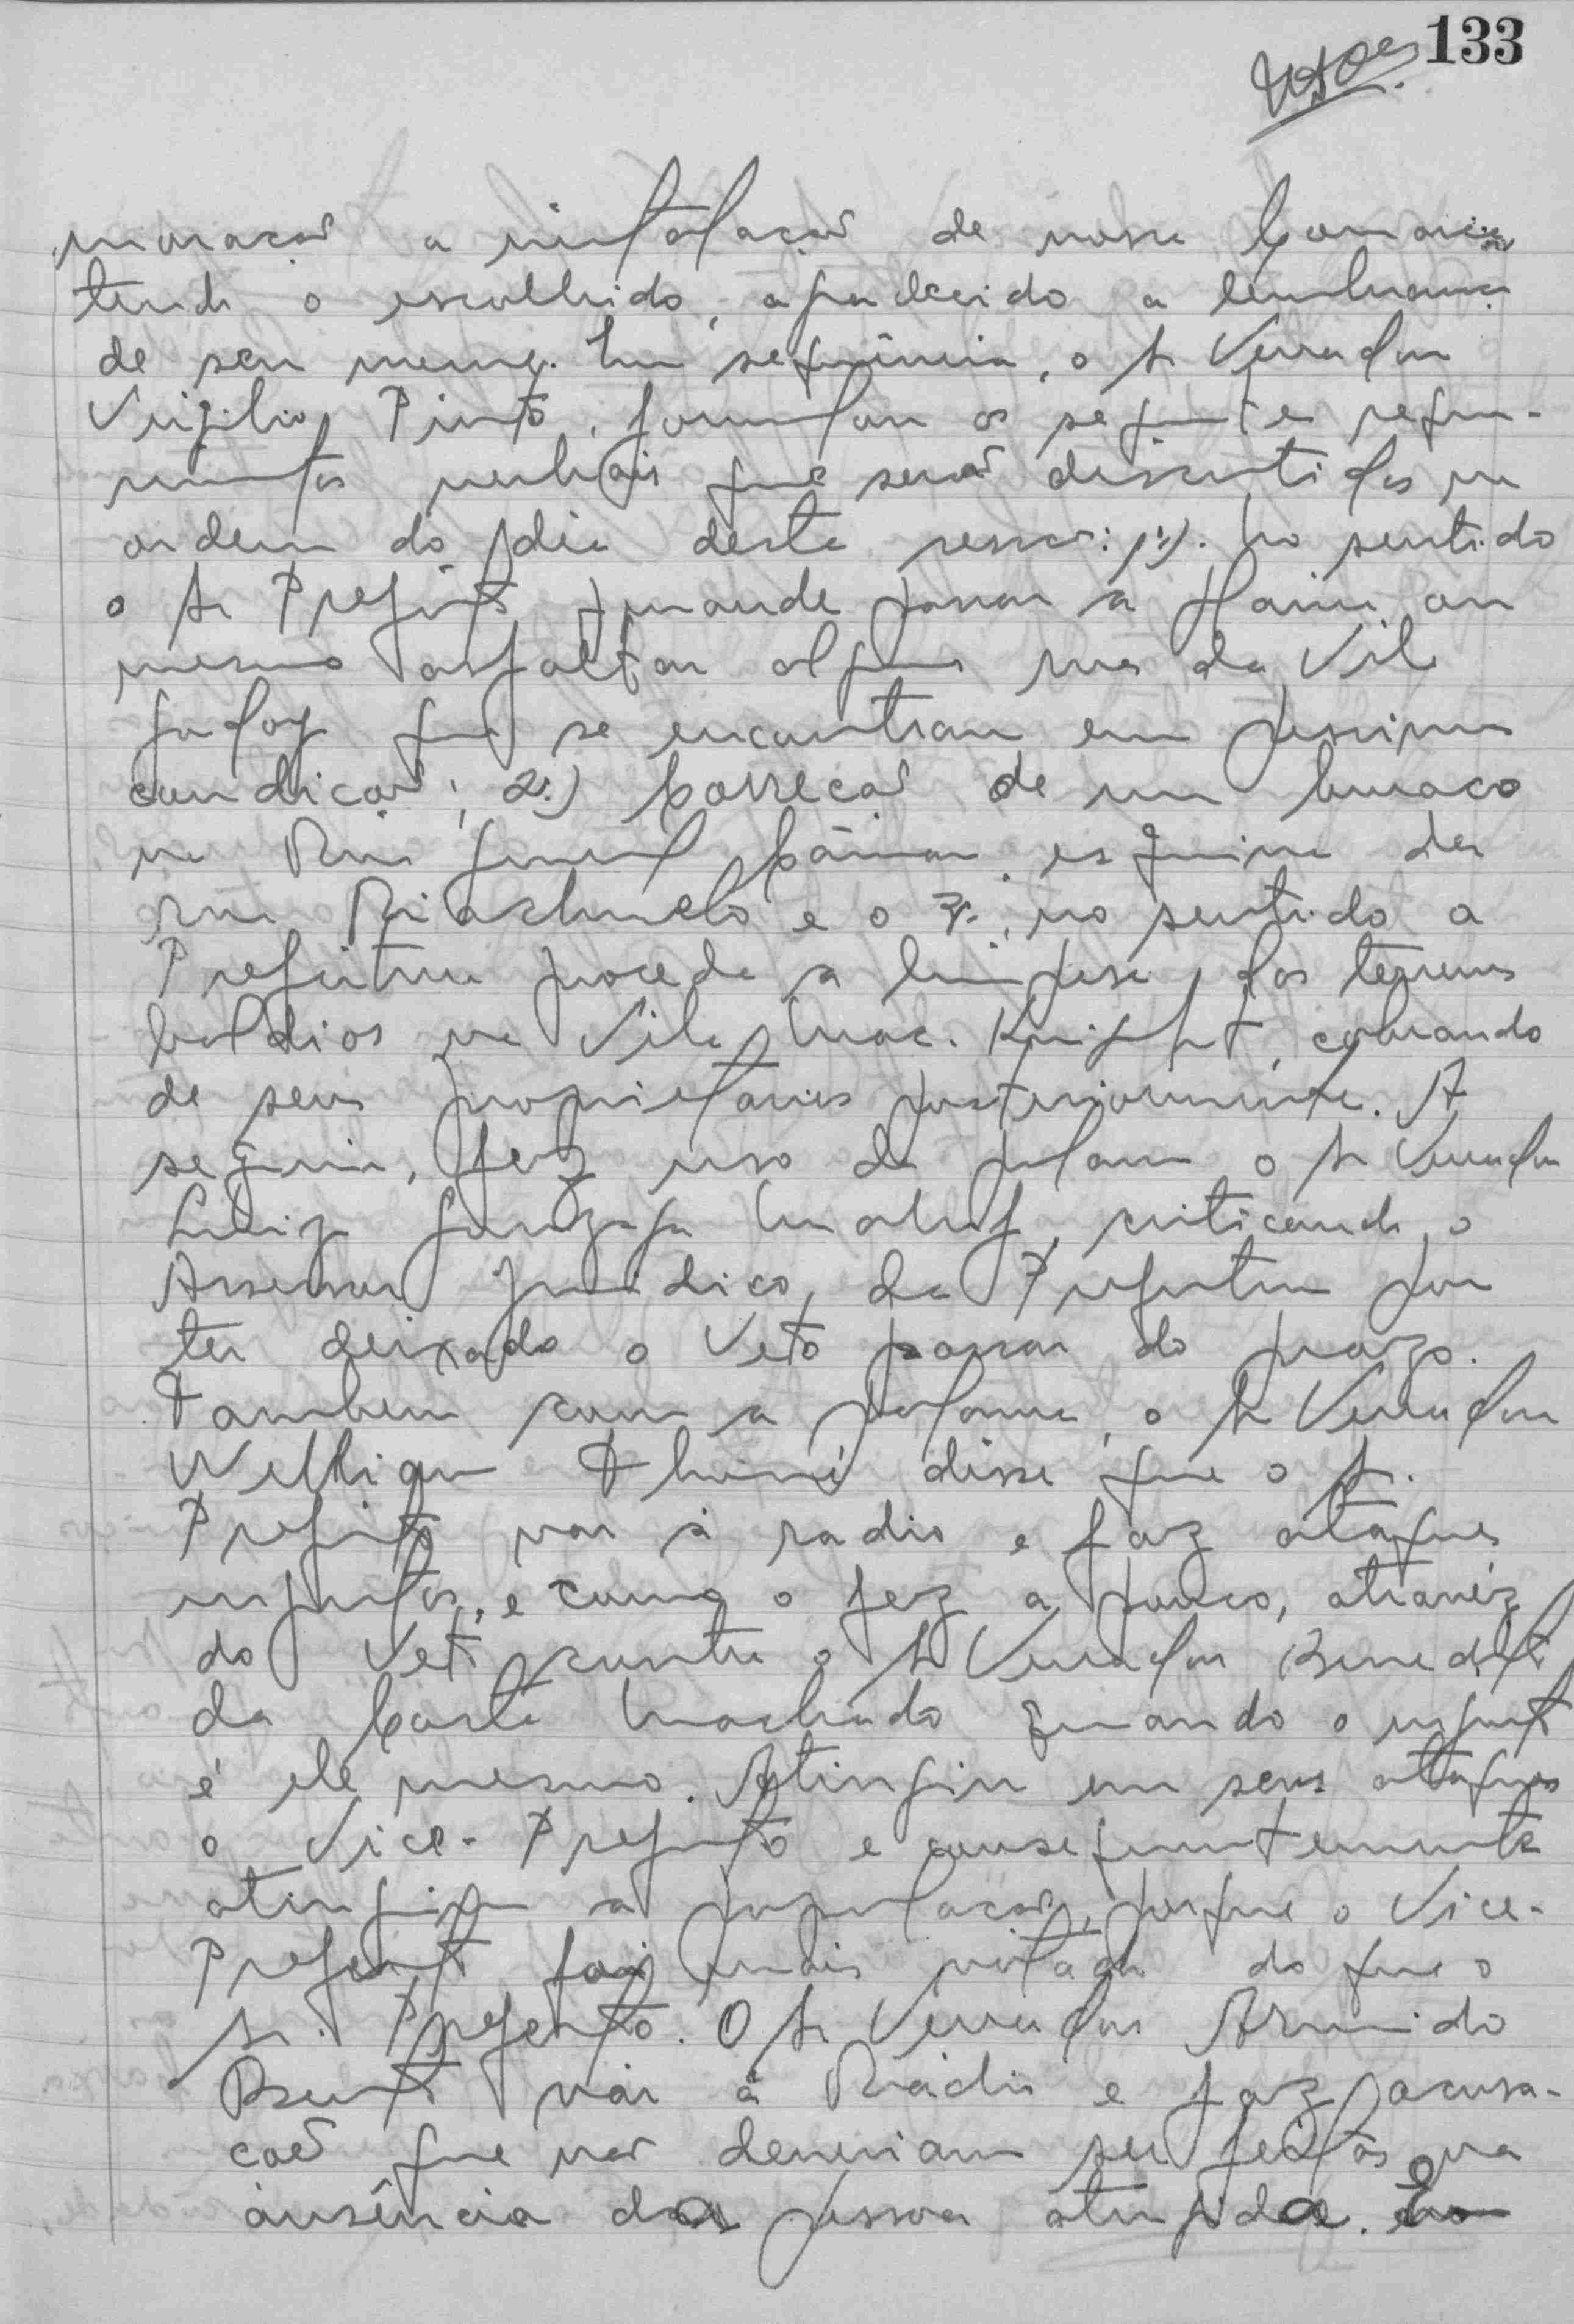 133
moração a instalação de nossa Comarca
tendo o escolhido, agradecido a lembrança
de seu nome. Em sequência, o Sr Vereador
Virgilio Pinto, formulou os seguintes reque-
rimentos verbais que serão discutidos na
ordem do dia desta sessão: 1º). No sentido
o Sr Prefeito mande passar a plaina ou
mesmo asfaltar algumas ruas da Vila
Godoy que se encontram em pessimas
condições; 2º) Correção de um buraco
na Rua General Câmara, esquina da
rua Riachuelo e o 3º, no sentido a
Prefeitura proceda a limpesa dos terrenos
baldios na Vila Mac. Knight, cobrando
de seus proprietarios posteriormente. A
seguir, fez uso da palavra o Sr Vereador
Luiz Gonzaga Maluf, criticando o
Assessor Juridico da Prefeitura por
ter deixado o Veto passar do prazo.
Tambem com a palavra, o Sr Vereador
Thomé disse que o Sr.
Prefeito vai à radio e faz ataques
injustos, e como o fez a pouco, atravéz
do Veto contra o Sr Vereador Benedito
da Costa Machado quando o injusto
é ele mesmo. Atingiu em seus ataques
o Vice-Prefeito e consequentemente
atingiu a população, porque o Vice-
Prefeito foi mais votado do que o
Sr. Prefeito. O Sr Vereador Armindo
vai à Rádio e faz acusa-
ções que não deveriam ser feitas na
ausência da pessoa atingida.